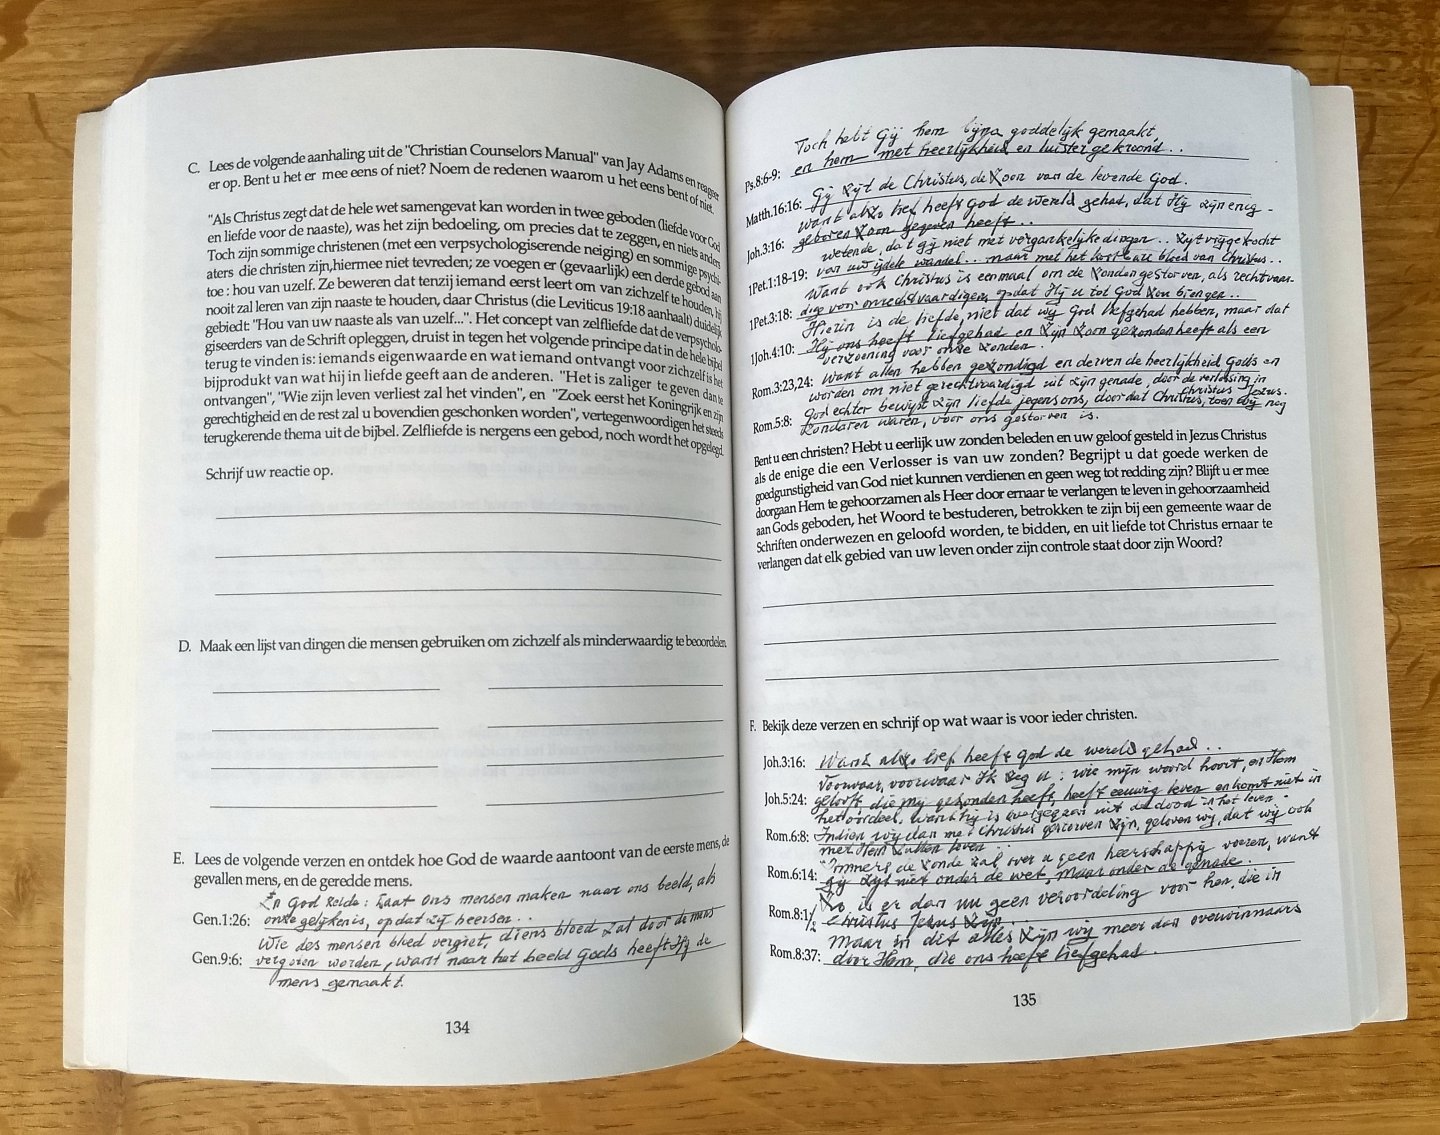 C. Lees de volgende aanhaling uit de "Christian Counselors Manual" van Jay Adams en reageer
er op. Bent u het er mee eens of niet? Noem de redenen waarom u het eens bent of niet.
"Als Christus zegt dat de hele wet samengevat kan worden in twee geboden (liefde voor God
en liefde voor de naaste), was het zijn bedoeling, om precies dat te zeggen, en niets anders
Toch zijn sommige christenen (met een verpsychologiserende neiging) en sommige psychi-
aters die christen zijn,hiermee niet tevreden; ze voegen er (gevaarlijk) een derde gebod aan
toe : hou van uzelf. Ze beweren dat tenzij iemand eerst leert om van zichzelf te houden, hij
nooit zal leren van zijn naaste te houden, daar Christus (die Leviticus 19:18 aanhaalt) duidelijk
gebiedt: "Hou van uw naaste als van uzelf...". Het concept van zelfliefde dat de verpsycholo-
giseerders van de Schrift opleggen, druist in tegen het volgende principe dat in de hele bijbel
terug te vinden is: iemands eigenwaarde en wat iemand ontvangt voor zichzelf is het
bijprodukt van wat hij in liefde geeft aan de anderen. "Het is zaliger te geven dan te
ontvangen", "Wie zijn leven verliest zal het vinden", en "Zoek eerst het Koningrijk en zijn
gerechtigheid en de rest zal u bovendien geschonken worden", vertegenwoordigen het steeds
terugkerende thema uit de bijbel. Zelfliefde is nergens een gebod, noch wordt het opgelegd.
Schrijf uw reactie op.
D. Maak een lijst van dingen die mensen gebruiken om zichzelf als minderwaardig te beoordelen.
E. Lees de volgende verzen en ontdek hoe God de waarde aantoont van de eerste mens, de
gevallen mens, en de geredde mens.
En God zeide: Laat ons mensen maken naar ons beeld, als
Gen.1:26: onze gelijkenis, opdat zij heersen..
Wie des mensen bloed vergiet, diens bloed zal door de mens
Gen.9:6: vergoten worden, want naar het beeld Gods heeft Hij de
mens gemaakt.
134
Toch hebt Gij hem bijna goddelijk gemaakt,
Ps.8:6-9: en hem met heerlijkheid en luister gekroond..
Matth.16:16: Gij zijt de Christus, de Zoon van de levende God.
Want alzo lief heeft God de wereld gehad, dat Hij zijn enig-
Joh.3:16: geboren Zoon gegeven heeft..
wetende, dat gij niet met vergankelijke dingen.. zijt vrijgekocht
1Pet.1:18-19: van uw ijdele wandel... maar met het kostbare bloed van Christus..
Want ook Christus is eenmaal om de zonden gestorven, als rechtvaar-
1Pet.3:18: dige voor onrechtvaardigen, opdat Hij u tot God zou brengen..
Hierin is de liefde, niet dat wij God liefgehad hebben, maar dat
1Joh.4:10: Hij ons heeft liefgehad en zijn Zoon gezonden heeft als een
verzoening voor onze zonden.
Rom.3:23,24: Want allen hebben gezondigd en derven de heerlijkheid Gods en
worden om niet gerechtvaardigd uit zijn genade, door de verlossing in
Christus Jezus.
Rom.5:8: God echter bewijst zijn liefde jegens ons, doordat Christus, toen wij nog
zondaren waren, voor ons gestorven is.
Bent u een christen? Hebt u eerlijk uw zonden beleden en uw geloof gesteld in Jezus Christus
als de enige die een Verlosser is van uw zonden? Begrijpt u dat goede werken de
goedgunstigheid van God niet kunnen verdienen en geen weg tot redding zijn? Blijft u er mee
doorgaan Hem te gehoorzamen als Heer door ernaar te verlangen te leven in gehoorzaamheid
aan Gods geboden, het Woord te bestuderen, betrokken te zijn bij een gemeente waar de
Schriften onderwezen en geloofd worden, te bidden, en uit liefde tot Christus ernaar te
verlangen dat elk gebied van uw leven onder zijn controle staat door zijn Woord?
F. Bekijk deze verzen en schrijf op wat waar is voor ieder christen.
Joh.3:16: Want alzo lief heeft God de wereld gehad...
Voorwaar, voorwaar Ik zeg u: wie mijn woord hoort, en Hem
Joh.5:24: gelooft, die mij gezonden heeft, heeft eeuwig leven en komt niet in
het oordeel, want hij is overgegaan uit de dood in het leven.
Rom.6:8: Indien wij dan met Christus gestorven zijn, geloven wij, dat wij ook
met Hem zullen leven..
Immers, de zonde zal over u geen heerschappij voeren, want
Rom.6:14: gij zijt niet onder de wet, maar onder de genade.
Zo is er dan nu geen veroordeling voor hen, die in
Rom.8:1/2 Christus Jezus zijn...
Maar in dit alles zijn wij meer dan overwinnaars
Rom.8:37: door Hem, die ons heeft liefgehad.
135